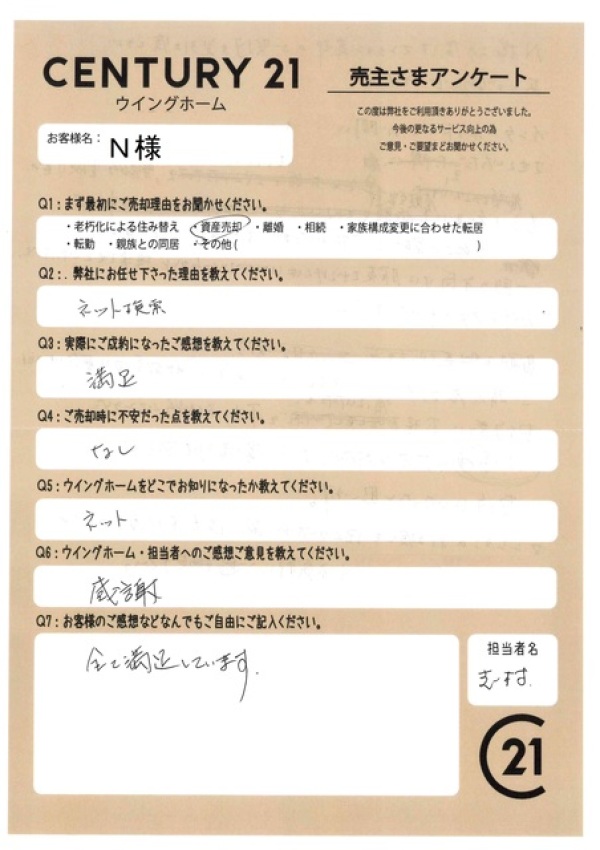 CENTURY 21
ウイングホーム
売主さまアンケート
この度は弊社をご利用頂きありがとうございました。
今後の更なるサービス向上の為
ご意見・ご要望までお聞かせください。
お客様名： N様
Q1：まず最初にご売却理由をお聞かせください。
・老朽化による住み替え ・資産売却 ・離婚 ・相続 ・家族構成変更に合わせた転居
・転勤 ・親族との同居 ・その他( )
Q2：．弊社にお任せ下さった理由を教えてください。
ネット検索
Q3：実際にご成約になったご感想を教えてください。
満足
Q4：ご売却時に不安だった点を教えてください。
なし
Q5：ウイングホームをどこでお知りになったか教えてください。
ネット
Q6：ウイングホーム・担当者へのご感想ご意見を教えてください。
感謝
Q7：お客様のご感想などなんでもご自由にご記入ください。
全て満足しています。
担当者名
C21